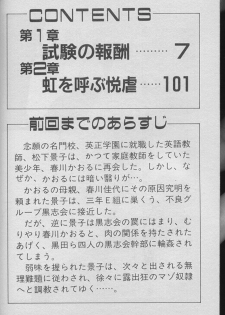 CONTENTS
第1章
試験の報酬………7
第2章
虹を呼ぶ悦虐……101
前回までのあらすじ
念願の名門校、英正学園に就職した英語教
師、松下景子は、かつて家庭教師をしていた
美少年、春川かおるに再会した。しかし、な
ぜか、かおるには暗い翳りが…。
かおるの母親、春川佳代にその原因究明を
頼まれた景子は、三年E組に巣くう、不良グ
ループ黒志会に接近した。
だが、逆に景子は黒志会の罠にはまり、む
りやり春川かおると、肉の関係を持たされた
あげく、黒田ら四人の黒志会幹部に輪姦され
てしまう。
弱味を握られた景子は、次々と出される無
理難題に従わされ、徐々に露出狂のマゾ奴隷
へと調教されてゆく……。